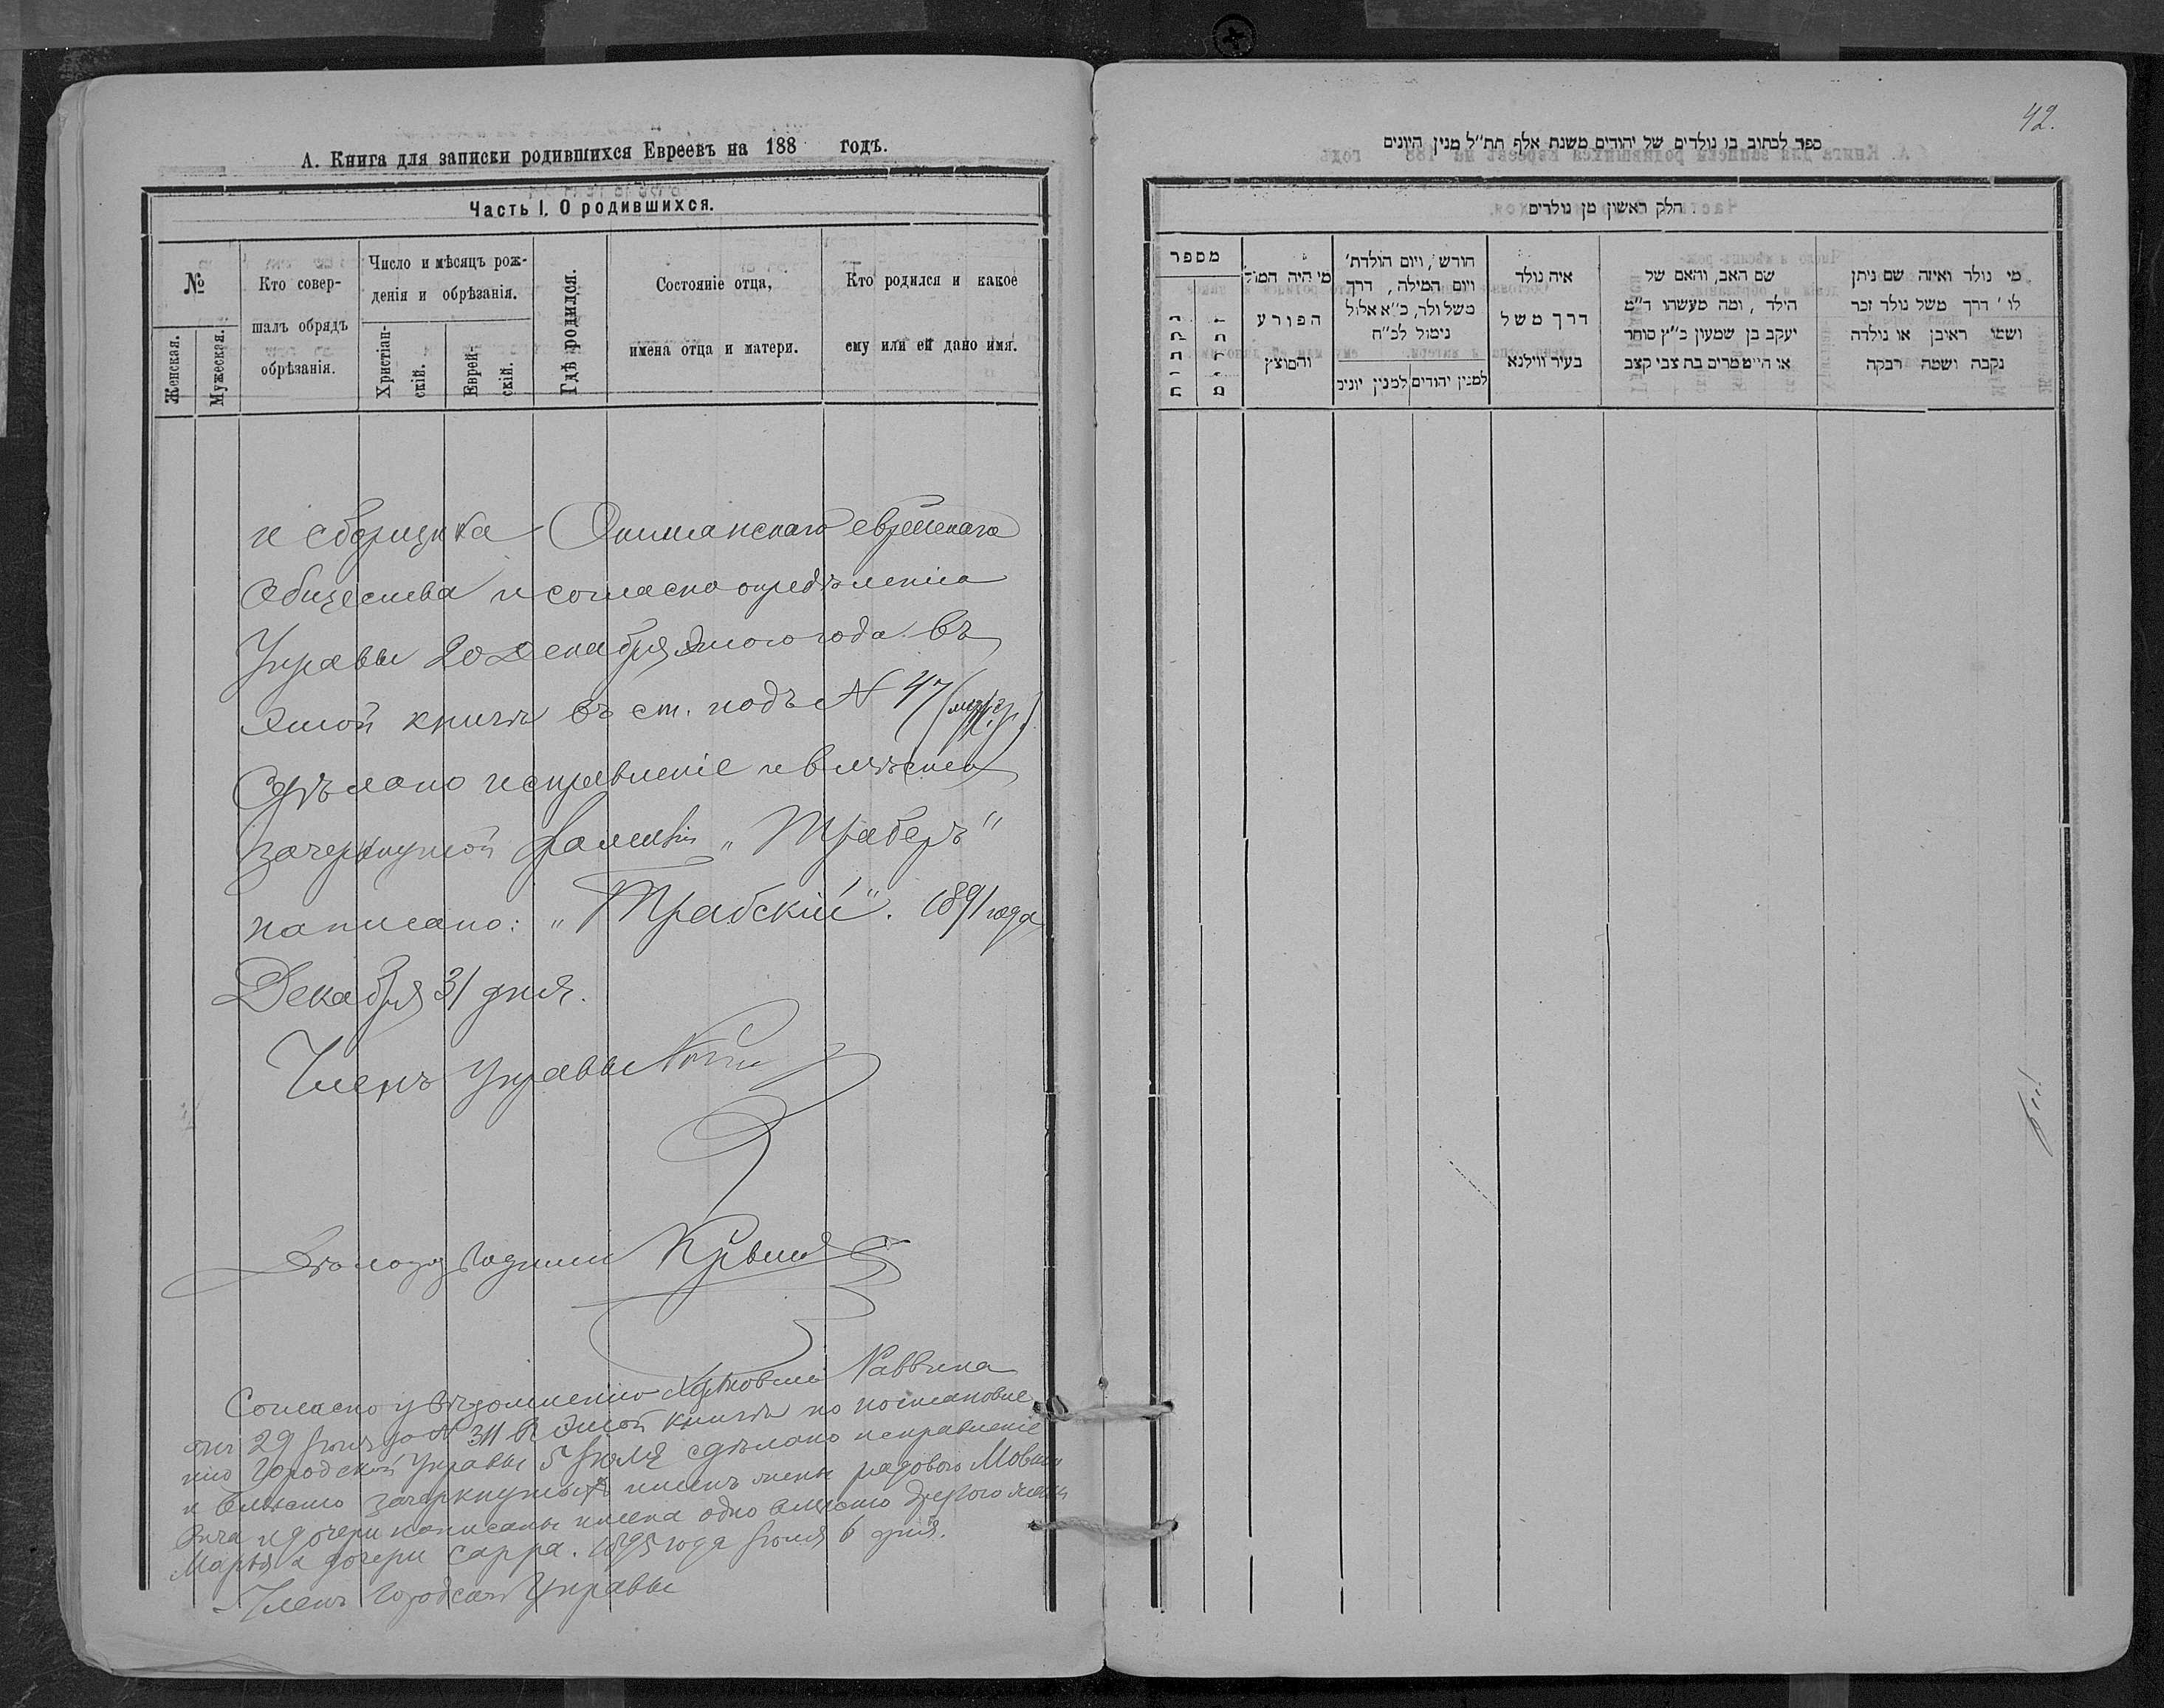 А. Книга для записки родившихся Евреевъ на 188 годъ.
Часть I. О родившихся.
№
Женская.
Мужеская.
Кто совер-
шалъ обрядъ
обрѣзанія.
Число и мѣсяцъ рож-
денія и обрѣзанія.
Христіан-
скій.
Еврей-
скій.
Гдѣ родился.
Состояніе отца,
имена отца и матери.
Кто родился и какое
ему или ей дано имя.
и сборщика Ошмянскаго еврейскаго
Общества и согласно опредѣленія
Управы 20 Декабря этого года въ
этой книгѣ въ ст. подъ № 47
Сдѣлано исправленіе и вмѣсто
зачеркнутой фамиліи „Траберъ“
написано: „Трабскій“. 1891 года
Декабря 31 дня.
Членъ Управы
Согласно увѣдомленію Раввина
отъ 29 Іюня за № 311 въ этой книгѣ по постановле
нію Городской Управы 5 Іюля сдѣлано исправленіе
и вмѣсто зачеркнутыхъ именъ жены рядового
и дочери написаны имена одно вмѣсто другого жены
Марья а дочери Сарра. 1895 года Іюля 6 дня.
Членъ Городской Управы
42.
ספר לכתוב בו נולדים של יהודים משנת אלף תת״ל מנין היונים
חלק ראשון מן נולדים
מספר
מי היה המוהל
הפורע
והמוצץ
חודש, ויום הולדת'
ויום המילה, דרך
משל ולד, כ״א אלול
נימול לכ״ח
למנין יהודים
למנין יונים
איה נולד
דרך משל
בעיר ווילנא
שם האב, והאם של
הילד, ומה מעשהו ד״מ
יעקב בן שמעון כ״ץ סוחר
או הייטמרים בת צבי קצב
מי נולד ואיזה שם ניתן
לו' דרך משל נולד זכר
ושמו ראובן או נולדה
נקבה ושמה רבקה